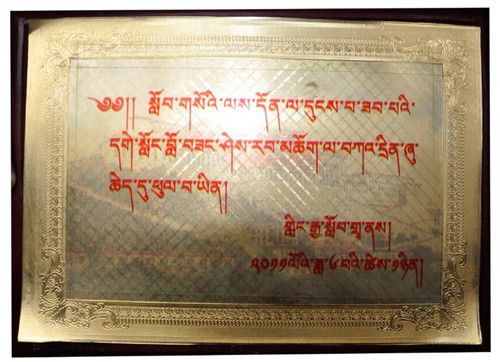 ༄༅།། སློབ་གསོའི་ལས་དོན་ལ་དུངས་བ་ཟབ་པའི་
དགེ་སློང་བློ་བཟང་ཤེས་རབ་མཆོག་ལ་བཀའ་དྲིན་ཞུ་
ཆེད་དུ་ཕུལ་བ་ཡིན།
གླིང་རྒྱ་སློབ་གྲྭ་ནས།
༢༠༡༡ལོའི་ཟླ་༦་པའི་ཚེས་༡ཉིན།